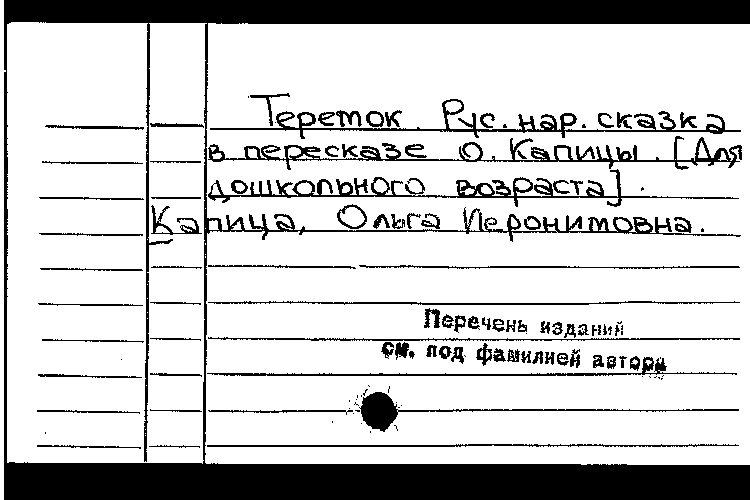 Теремок. Рус. нар. сказка
в пересказе О. Капицы. [Для
дошкольного возраста].
Капица, Ольга Иеронимовна.
Перечень изданий
см. под фамилией автора